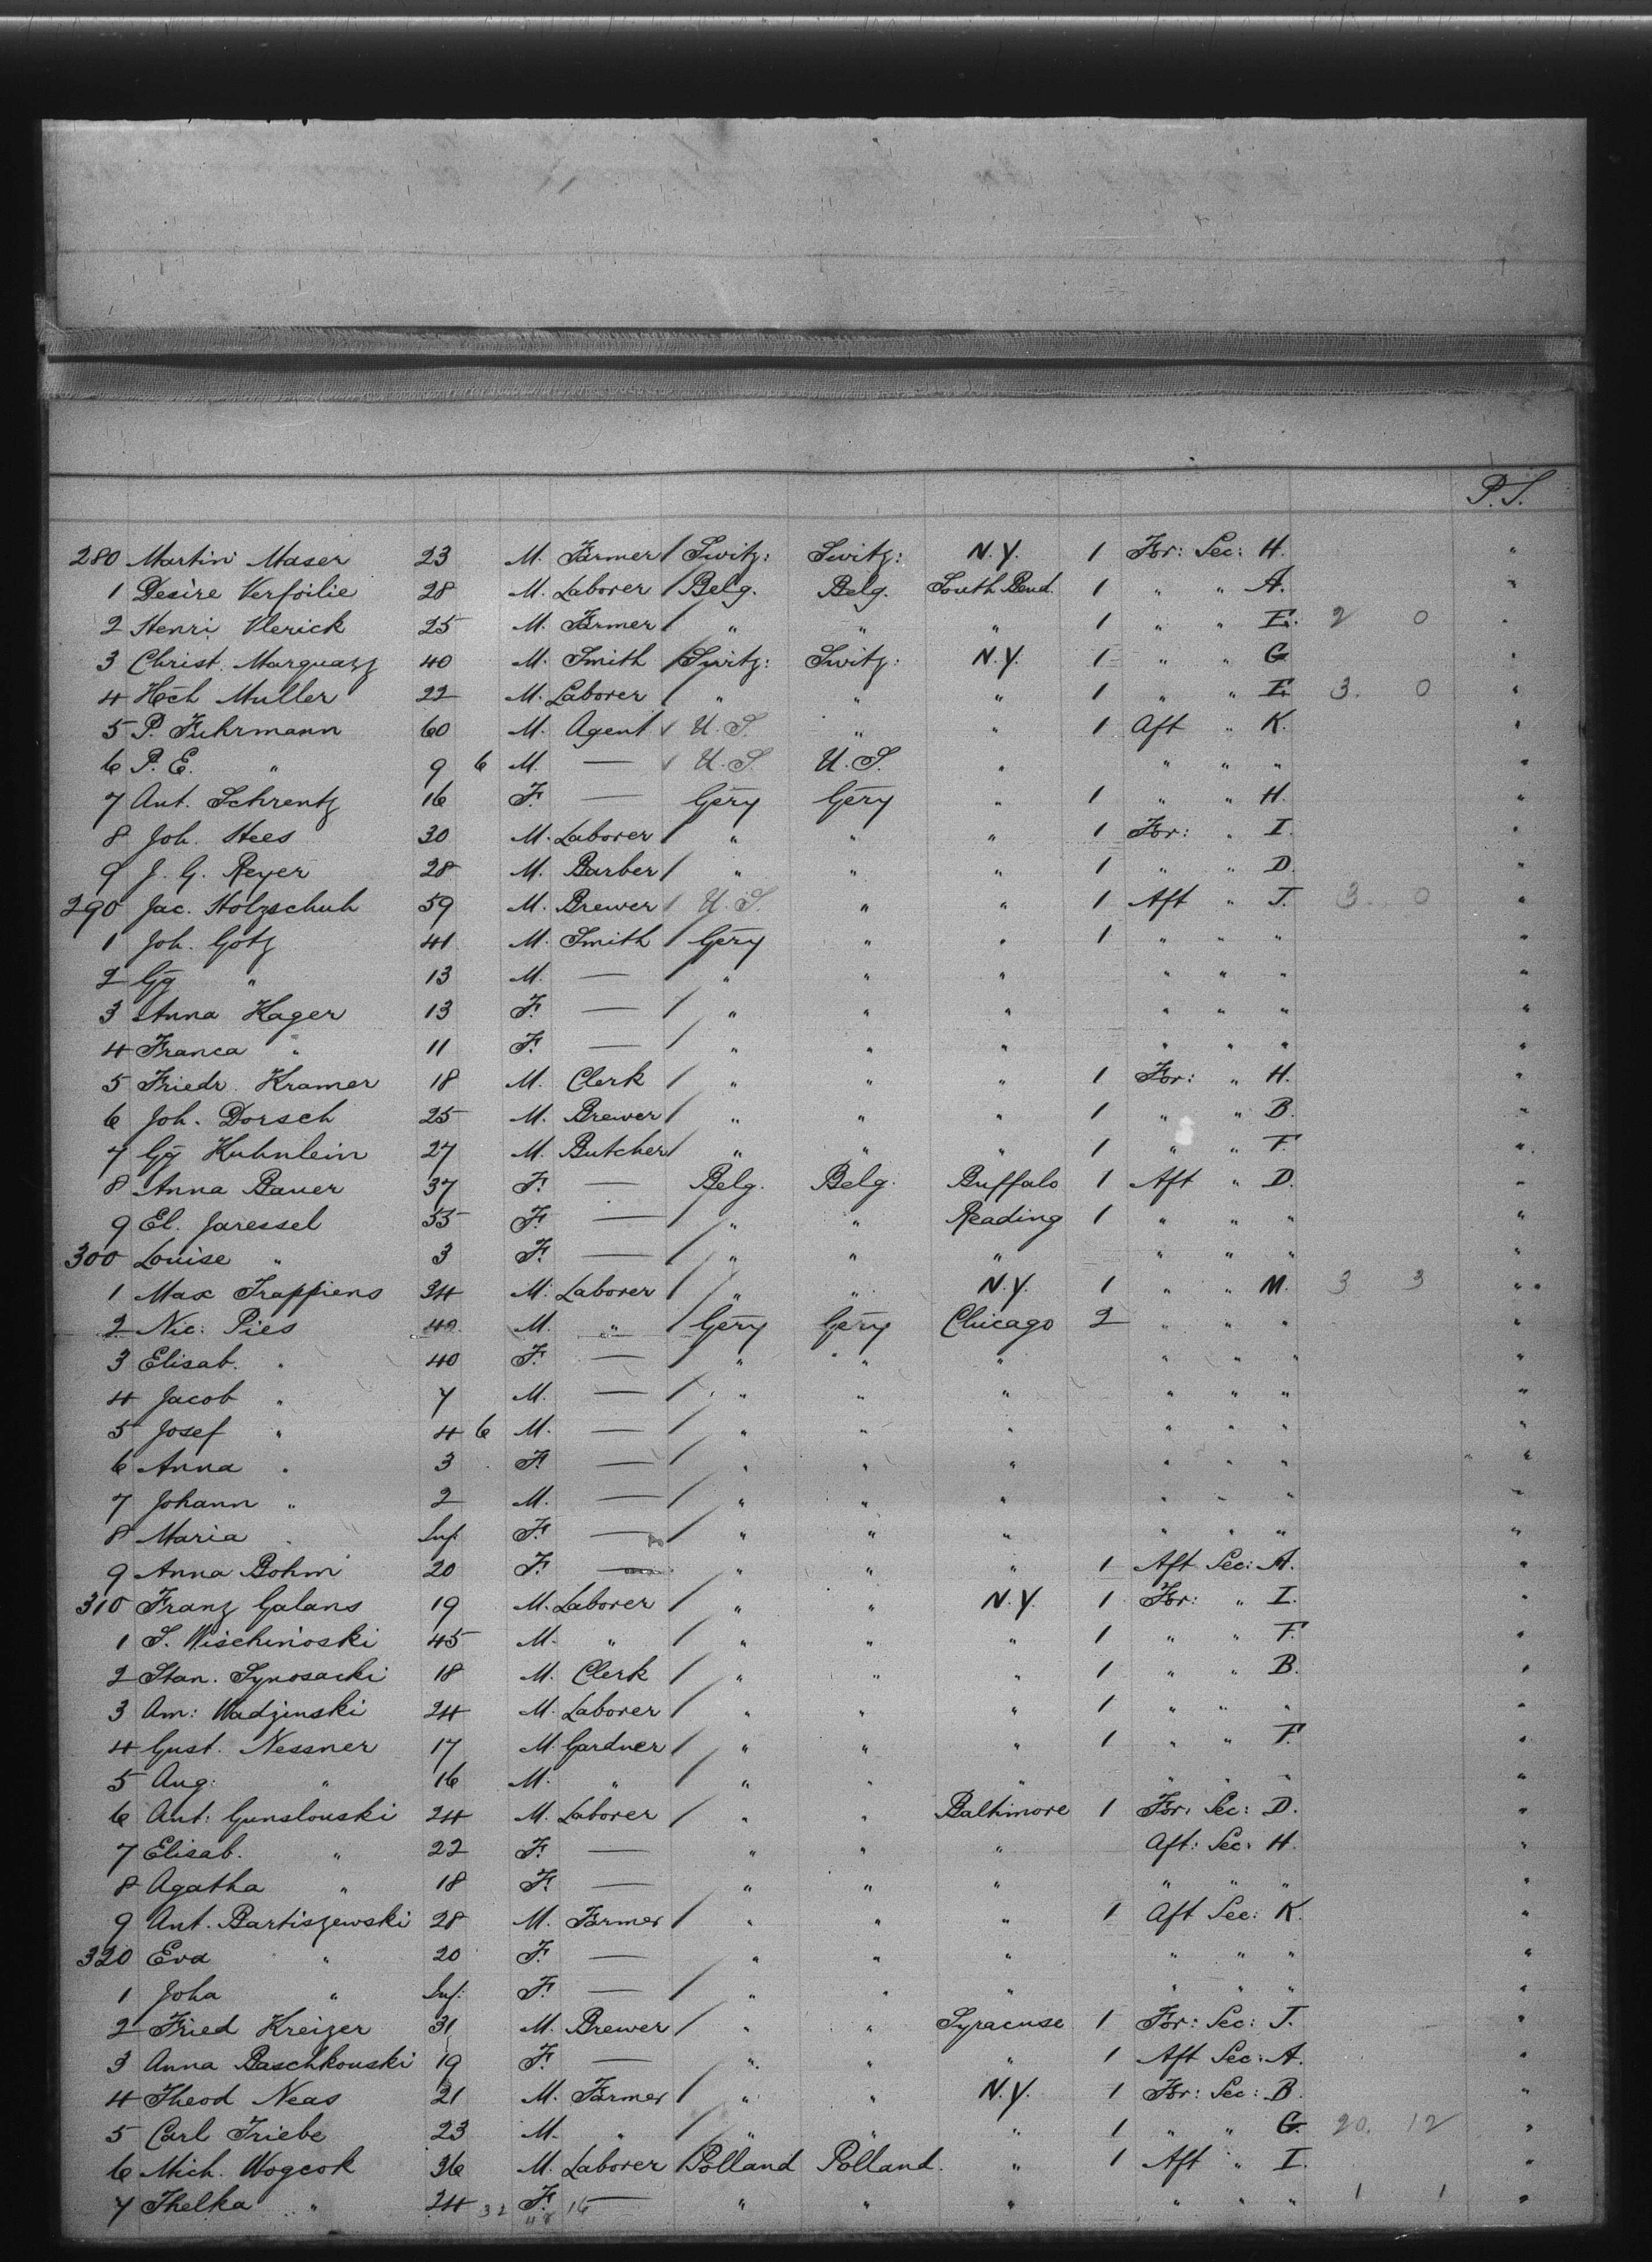 P.S.
280 Martin Maser 23 M. Farmer / Switz: Switz: N.Y. 1 For: Sec: H. "
1 Desire Verfoilie 28 M. Laborer / Belg. Belg. South Bend. 1 " " A. "
2 Henri Vlerick 25 M. Farmer / " " " 1 " " E. 2 0 "
3 Christ. Marquazz 40 M. Smith / Switz: Switz: N.Y. 1 " " G "
4 Hch Muller 22 M. Laborer / " " " 1 " " E. 3. 0 "
5 P. Fuhrmann 60 M. Agent / U.S. " " 1 Aft " K. "
6 P. E. " 9 6 M. — / U.S. U.S. " " " " "
7 Ant. Schrentz 16 F. — Gery Gery " 1 " " H. "
8 Joh. Hees 30 M. Laborer / " " " 1 For: " I. "
9 J. G. Reyer 28 M. Barber / " " " 1 " " D. "
290 Jac. Holzschuh 59 M. Brewer / U.S. " " 1 Aft " J. 3. 0 "
1 Joh. Gotz 41 M. Smith / Gery " " 1 " " " "
2 Gg " 13 M. — / " " " " " " "
3 Anna Hager 13 F. — / " " " " " " "
4 Franca " 11 F. — / " " " " " " "
5 Friedr. Kramer 18 M. Clerk / " " " 1 For: " H. "
6 Joh. Dorsch 25 M. Brewer / " " " 1 " " B. "
7 Gg Kuhnlein 27 M. Butcher / " " " 1 " " F. "
8 Anna Bauer 37 F. — Belg. Belg. Buffalo 1 Aft " D. "
9 El. Jaressel 55 F. — / " " Reading 1 " " " "
300 Louise " 3 F. — / " " " " " " "
1 Max Trappiens 34 M. Laborer / " " N.Y. 1 " " M. 3 3 "
2 Nic: Pies 40 M. " / Gery Gery Chicago 2 " " " "
3 Elisab. " 40 F. — / " " " " " " "
4 Jacob " 7 M. — / " " " " " " "
5 Josef " 4 6 M. — / " " " " " " "
6 Anna " 3 F. — / " " " " " " "
7 Johann " 2 M. — / " " " " " " "
8 Maria " Inf. F. — / " " " " " " "
9 Anna Bohm 20 F. — " " " 1 Aft Sec: A. "
310 Franz Galans 19 M. Laborer / " " N.Y. 1 For: " I. "
1 S. Wischinoski 45 M. " / " " " 1 " " F. "
2 Stan. Synosacki 18 M. Clerk / " " " 1 " " B. "
3 Am: Wadzinski 24 M. Laborer / " " " 1 " " " "
4 Gust. Nessner 17 M. Gardner / " " " 1 " " F. "
5 Aug: " 16 M. " / " " " " " " "
6 Ant: Gunslouski 24 M. Laborer / " " Baltimore 1 For: Sec: D. "
7 Elisab. " 22 F. — " " " Aft: Sec: H. "
8 Agatha " 18 F. — " " " " " " "
9 Ant. Bartiszewski 28 M. Farmer / " " " 1 Aft Sec: K. "
320 Eva " 20 F. — " " " " " " "
1 Joha " Inf: F. — / " " " " " " "
2 Fried Kreizer 31 M. Brewer / " " Syracuse 1 For: Sec: J. "
3 Anna Baschkouski 19 F. — " " " 1 Aft Sec: A. "
4 Theod Neas 21 M. Farmer / " " N.Y. 1 For: Sec: B. "
5 Carl Triebe 23 M. " / " " " 1 " " G. 20. 12 "
6 Mich. Wogcok 36 M. Laborer / Polland Polland. " 1 Aft " I. "
7 Thelka " 24 32 F. 16 — " " " " " " 1 1 "